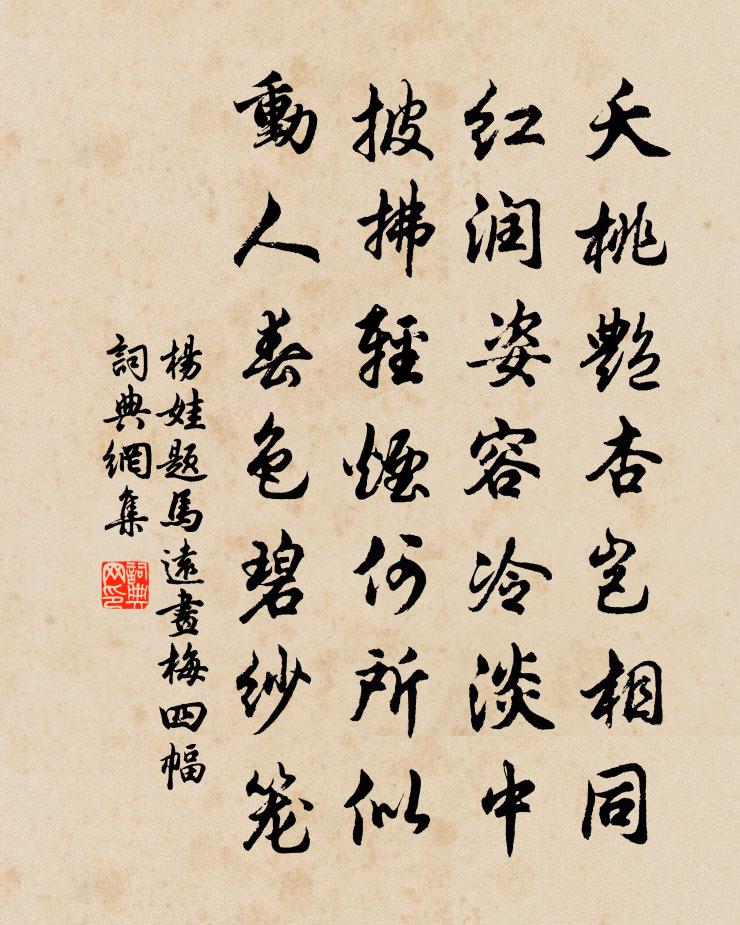 夭桃艷杏岂相同
红润姿容冷淡中
披拂輕煙何所似
動人春色碧纱笼
楊娃题馬遠畫梅四幅
詞典網集
詞典网印